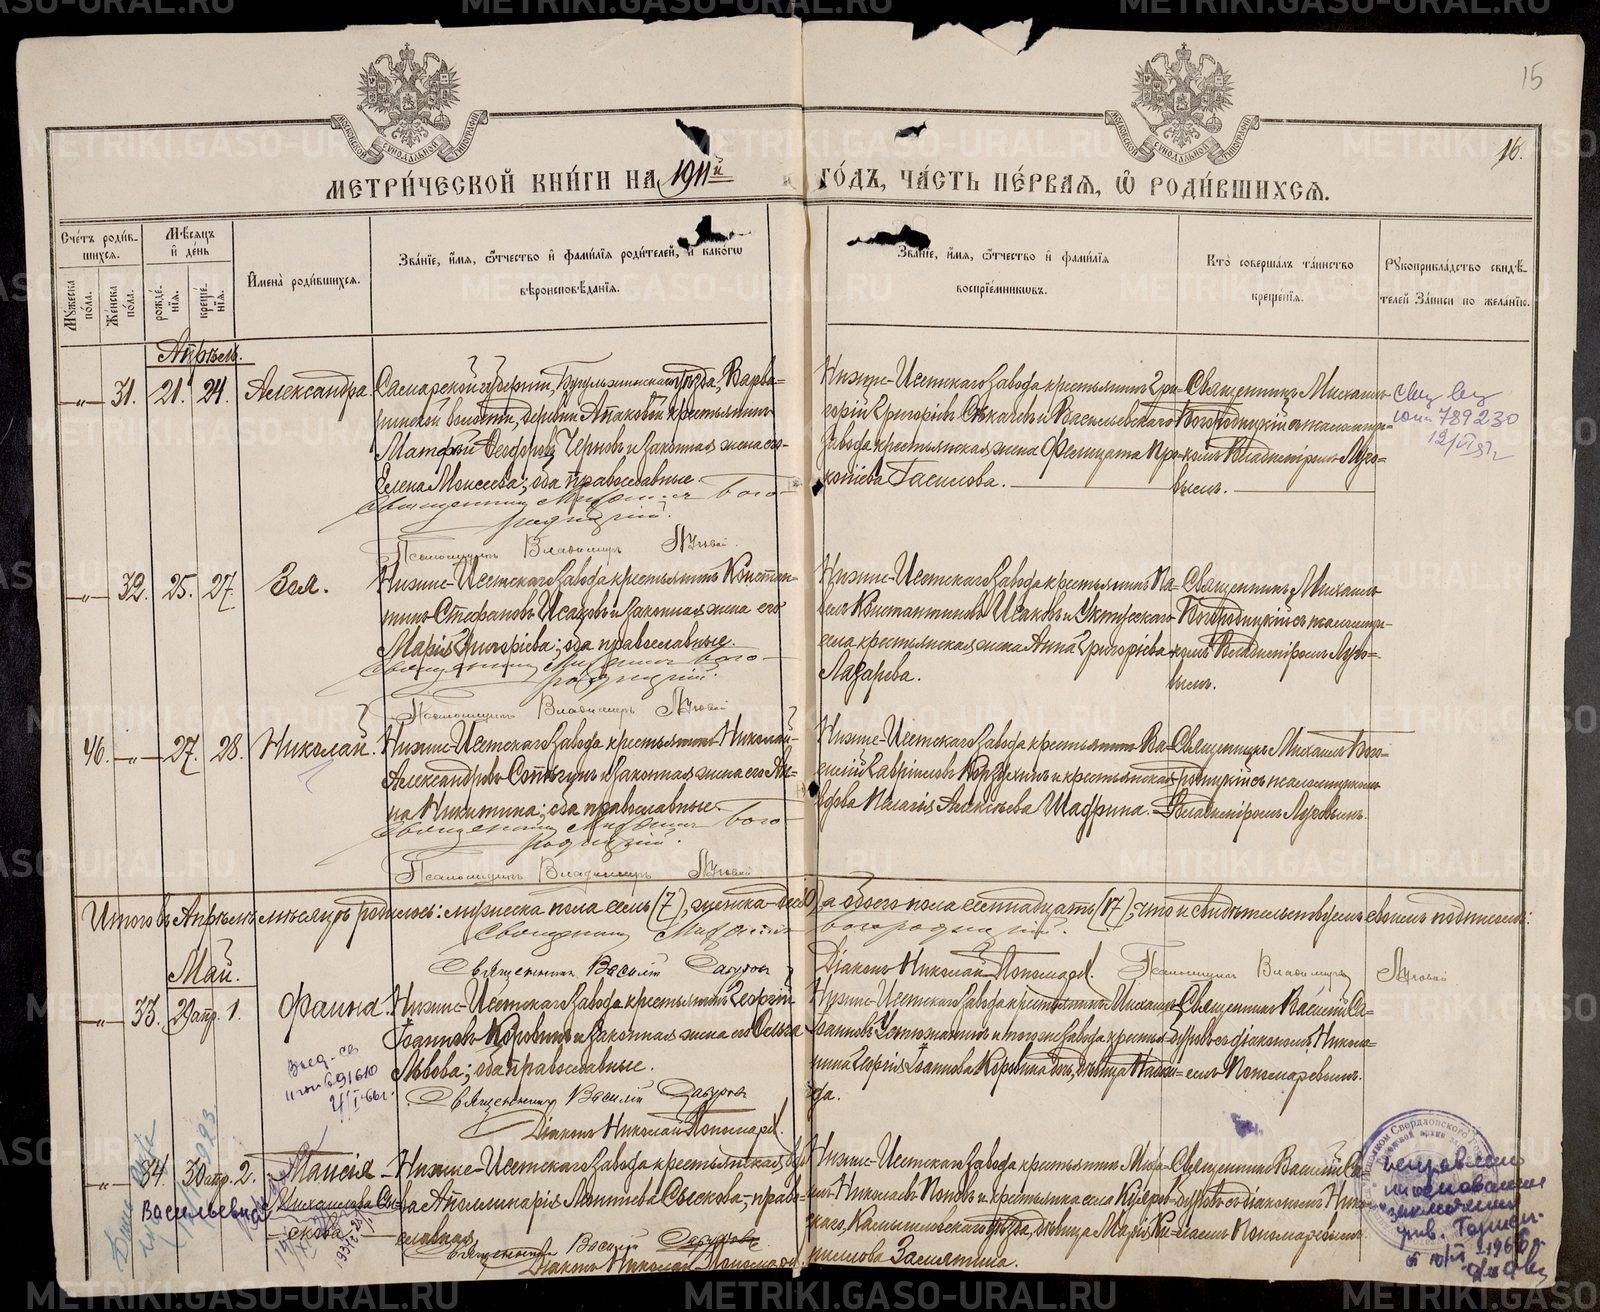 15
16.
МЕТРИ́ЧЕСКОЙ КНИ́ГИ НА 1911й ГО́ДЪ, ЧА́СТЬ ПЕ́РВАѦ, Ѡ҆ РОДИ́ВШИХСѦ.
Сче́тъ роди́вшихся.
Мѣ́сяцъ и҆ де́нь
Мꙋ́жеска по́ла.
Же́нска по́ла.
рожде́нїя.
креще́нїя.
И҆мена̀ роди́вшихся.
Зва́нїе, и҆́мя, ѻ҆́тчество и҆ фами́лїя роди́телей, и҆ како́гѡ
вѣроисповѣ́данїя.
Зва́нїе, и҆́мя, ѻ҆́тчество и҆ фами́лїя
воспрїе́мниковъ.
Кто̀ соверша́лъ та́инство
креще́нїя.
Рꙋкоприкла́дство свидѣ́телей за́писи по жела́нїю.
Апрѣль.
31. 21. 24. Александра
Самарской губерніи, Бугульминскаго уѣзда, Варва-
ринской волости, деревни Апаковой крестьянинъ
Матфей Ѳеодоровъ Черновъ и законная жена его
Елена Моисеева; оба православные
Священник Михаил Бого-
родицкий.
Псаломщикъ Владимиръ Луговой
Нижне-Исетскаго завода крестьянинъ Гри-
горій Григоріевъ Секачевъ и Васильевскаго
завода крестьянская жена Фелицата Про-
копіева Гасилова.
Священникъ Михаилъ
Богородицкій съ псаломщи-
комъ Владиміромъ Луго-
вымъ.
789230
32. 25. 27. Зоя.
Нижне-Исетскаго завода крестьянинъ Констан-
тинъ Стефановъ Исаковъ и законная жена его
Марія Григорьева; оба православные.
Священник Михаил Бого-
родицкий.
Псаломщикъ Владимиръ Луговой
Нижне-Исетскаго завода крестьянинъ Па-
велъ Константиновъ Исаковъ и Уктусскаго
села крестьянская жена Анна Григорьева
Лазарева.
Священникъ Михаилъ
Богородицкій съ псаломщи-
комъ Владиміромъ Луго-
вымъ.
46. 27. 28. Николай.
Нижне-Исетскаго завода крестьянинъ Николай
Александровъ Сотыгинъ и законная жена его Ан-
на Никитина; оба православные
Священник Михаил Бого-
родицкий.
Псаломщикъ Владимиръ Луговой
Нижне-Исетскаго завода крестьянинъ Ва-
силій Гавріиловъ Корзухинъ и крестьянская
вдова Пелагія Алексѣева Шадрина.
Священникъ Михаилъ Бого-
родицкій съ псаломщикомъ
Владиміромъ Луговымъ.
Итого въ Апрѣлѣ мѣсяцѣ родилось: мужеска пола семь (7), женска – десять (10), а обоего пола семнадцать (17), что и свидѣтельствуемъ своимъ подписомъ:
Священник Михаил Богородицкий.
Священникъ Василій Діаконъ Николай Пономарев. Псаломщикъ Владимиръ Луговой
Май.
33. 29 апр. 1. Фаина.
Нижне-Исетскаго завода крестьянинъ Георгій
Іоанновъ Коровинъ и законная жена его Ольга
Львова; оба православные.
Священникъ Василій
Діаконъ Николай Пономарев.
Нижне-Исетскаго завода крестьянинъ Михаилъ
Іоанновъ и того же завода крестья-
нина Георгія Іоаннова Коровина дочь, дѣвица Надеж-
да.
Священникъ Василій Са-
съ діакономъ Никола-
емъ Пономаревымъ.
691610
34. 30 апр. 2. Таисія
Михайлова Сы-
скова
Васильевна
Нижне-Исетскаго завода крестьянская вдо-
ва Аполлинарія Сыскова, право-
славная.
Священникъ Василій
Діаконъ Николай Пономарев.
Нижне-Исетскаго завода крестьянинъ Миха-
илъ Николаевъ Поповъ и крестьянка села Куяров-
скаго, Камышловскаго уѣзда, дѣвица Марія
Замятина.
Священникъ Василій Са-
съ діакономъ Нико-
лаемъ Пономаревымъ
исправлено
на основании
заключения